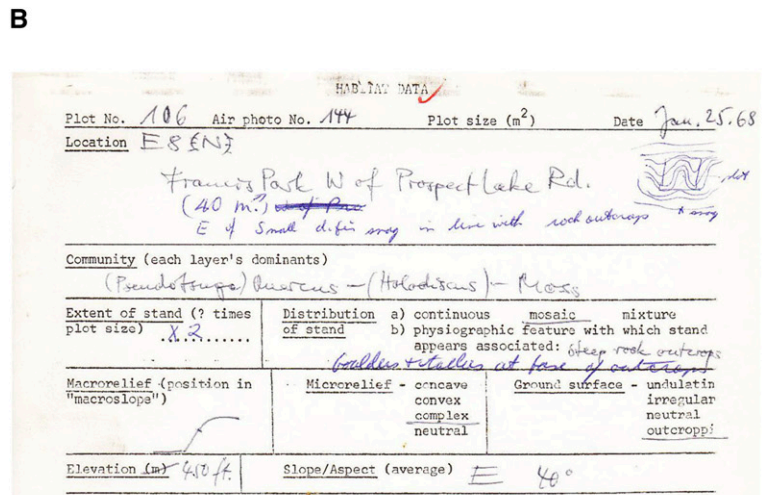 B
HABITAT DATA
Plot No. 106 Air photo No. 144 Plot size (m²) Date Jan. 25.68
Location E8 (N)
Francis Park W of Prospect Lake Rd.
plot
(40 m.)
E of Small d.fir snag in line with rock outcrops
x snag
Community (each layer's dominants)
(Pseudotsuga) Quercus - (Holodiscus) - Moss
Extent of stand (? times Distribution a) continuous mosaic mixture
plot size) X 2 of stand b) physiographic feature with which stand
appears associated: steep rock outcrops
boulders + talus at base of outcrops
Macrorelief (position in Microrelief - concave Ground surface - undulatin
"macroslope") convex irregular
complex neutral
neutral outcroppi
Elevation (m) 450 ft. Slope/Aspect (average) E 40°